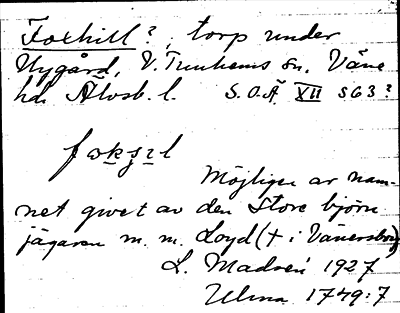 Foxhill?, torp under
Nygård, V. Tunhems sn, Väne
hd Älvsb. l. S.O.Ä XII s 63?
fɷkʂɪl
Möjligen är nam-
net givet av den store björn-
jägaren m. m. Loyd († i Vänersborg)
L. Madsén 1927
Ulma 1749:7